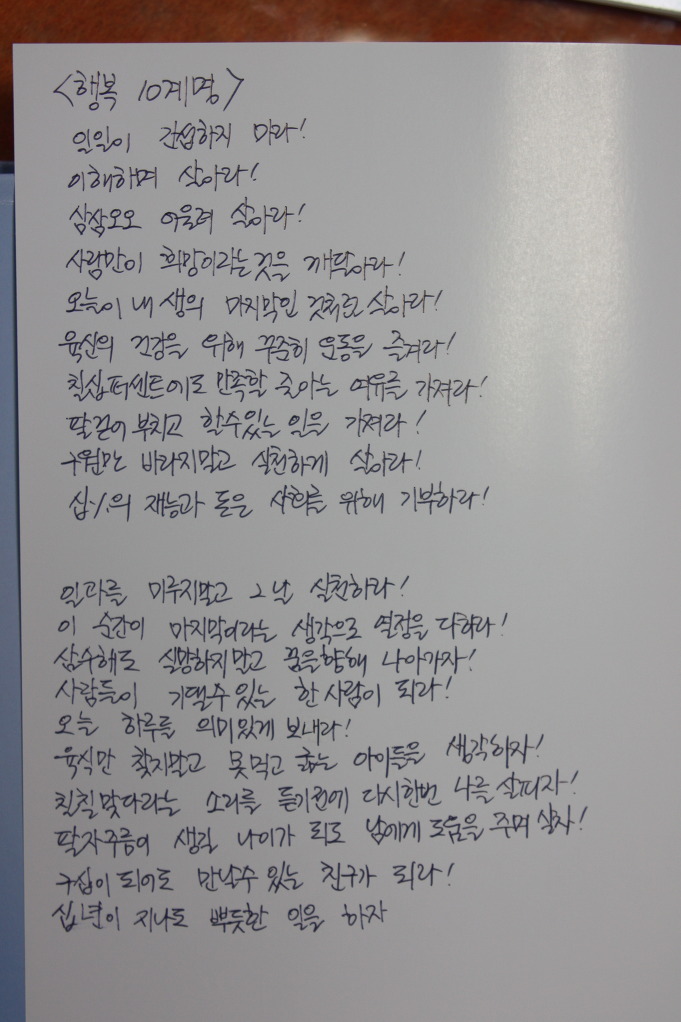 <행복 10계명>
일일이 간섭하지 마라!
이해하며 살아라!
삼삼오오 어울려 살아라!
사람만이 희망이라는것을 깨달아라!
오늘이 내 생의 마지막인 것처럼 살아라!
육신의 건강을 위해 꾸준히 운동을 즐겨라!
칠십퍼센트에도 만족할 줄아는 여유를 가져라!
팔걷어 부치고 할수있는 일을 가져라!
구원만 바라지말고 실천하게 살아라!
십%의 재능과 돈은 사회를 위해 기부하라!
일과를 미루지말고 그날 실천하라!
이 순간이 마지막이라는 생각으로 열정을 다하라!
삼수해도 실망하지말고 꿈을향해 나아가자!
사람들이 기댈수있는 한사람이 되라!
오늘 하루를 의미있게 보내라!
육식만 찾지말고 못먹고 굶는 아이들을 생각하자!
칠칠맞다라는 소리를 듣기전에 다시한번 나를 살피자!
팔자주름이 생길 나이가 되도 남에게 도움을 주며 살자!
구십이 되어도 만날수 있는 친구가 되라!
십년이 지나도 뿌듯한 일을 하자